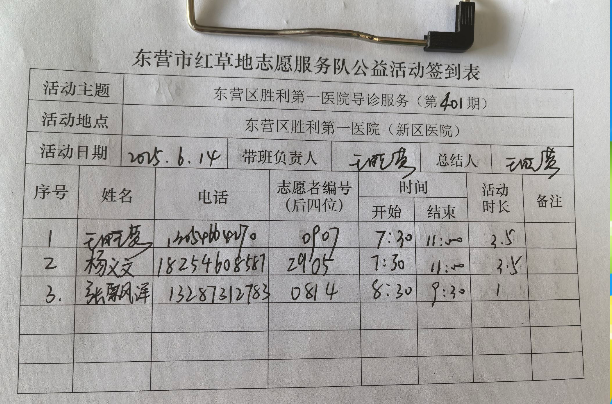 东营市红草地志愿服务队公益活动签到表
活动主题 东营区胜利第一医院导诊服务（第401期）
活动地点 东营区胜利第一医院（新区医院）
活动日期 2025.6.14 带班负责人 总结人
序号 姓名 电话 志愿者编号（后四位） 时间 开始 结束 活动时长 备注
1 0907 7:30 11:00 3.5
2 杨文文 18254608587 2905 7:30 11:00 3.5
3. 13287312783 0814 8:30 9:30 1